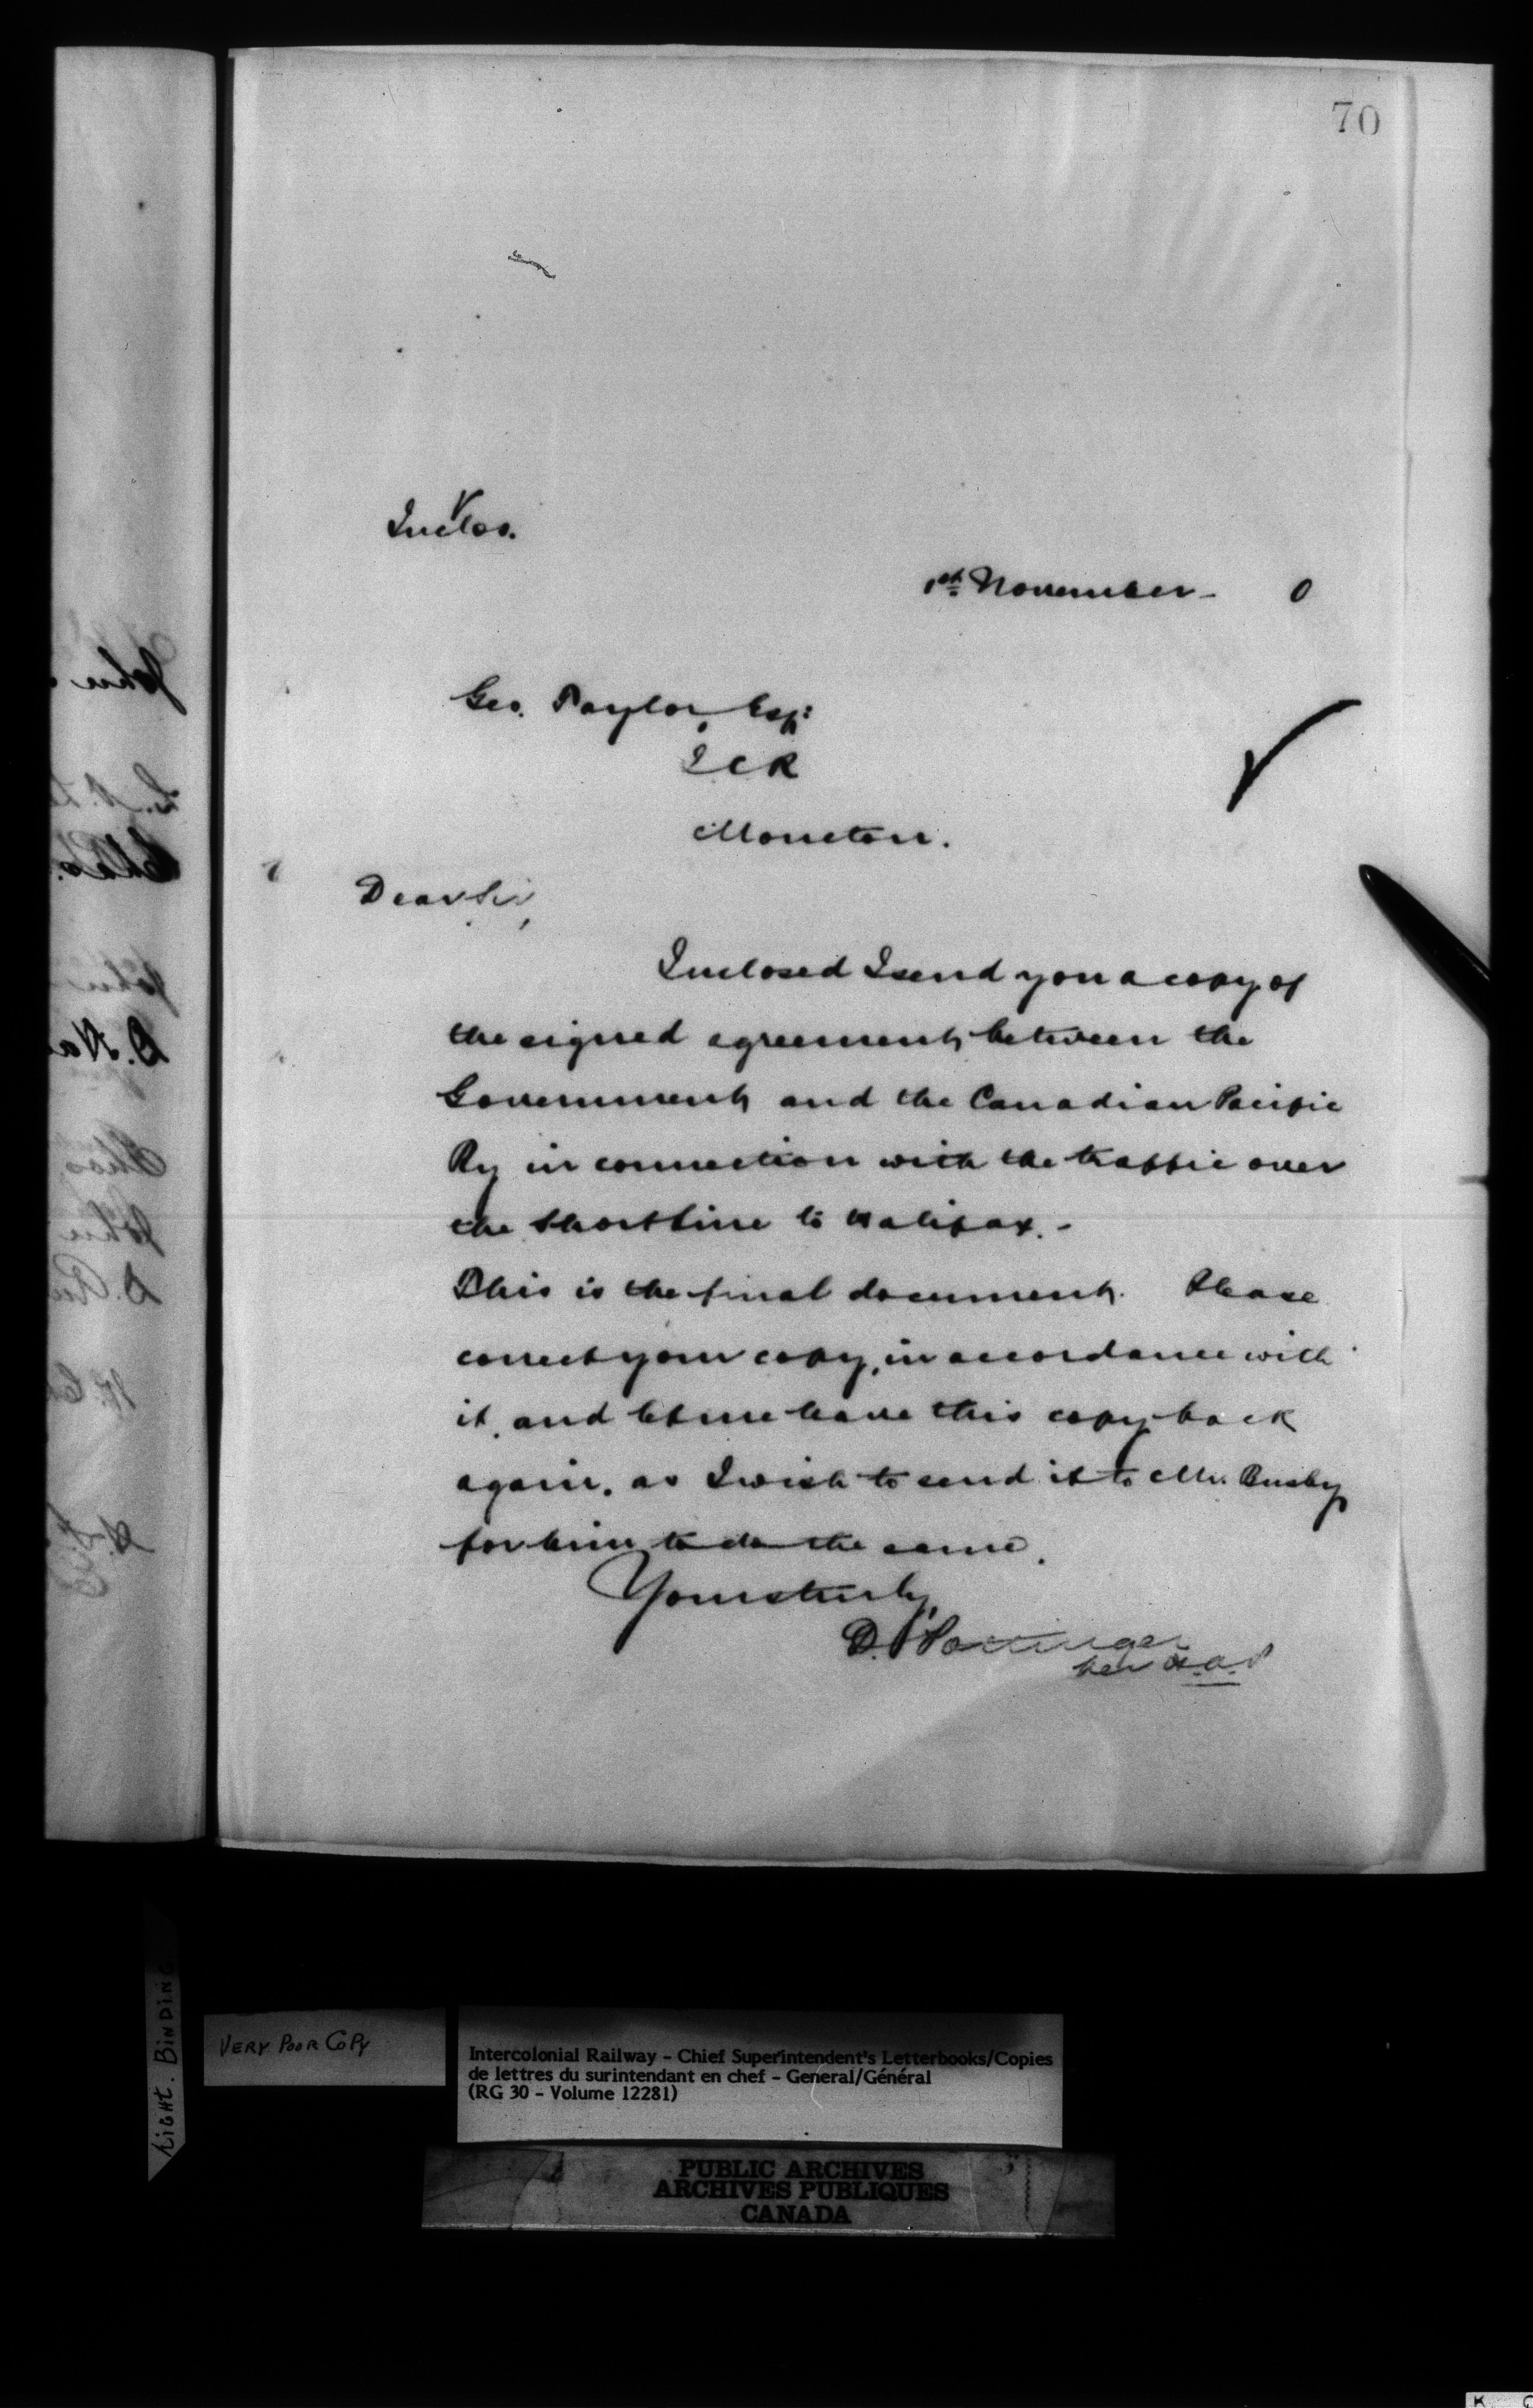 70
Inclos.
1st November - 0
Geo. Taylor, Esq:
ICR
Moncton.
Dear Sir,
Inclosed I send you a copy of
the signed agreement between the
Government and the Canadian Pacific
Ry in connection with the traffic over
the Short Line to Halifax. -
This is the final document. Please
correct your copy, in accordance with
it, and let me have this copy back
again, as I wish to send it to Mr. Busby
for him to do the same.
Yours truly,
D. Pottinger
VERY POOR COPY
TIGHT. BINDING
Intercolonial Railway - Chief Superintendent's Letterbooks/Copies
de lettres du surintendant en chef - General/Général
(RG 30 - Volume 12281)
PUBLIC ARCHIVES
ARCHIVES PUBLIQUES
CANADA